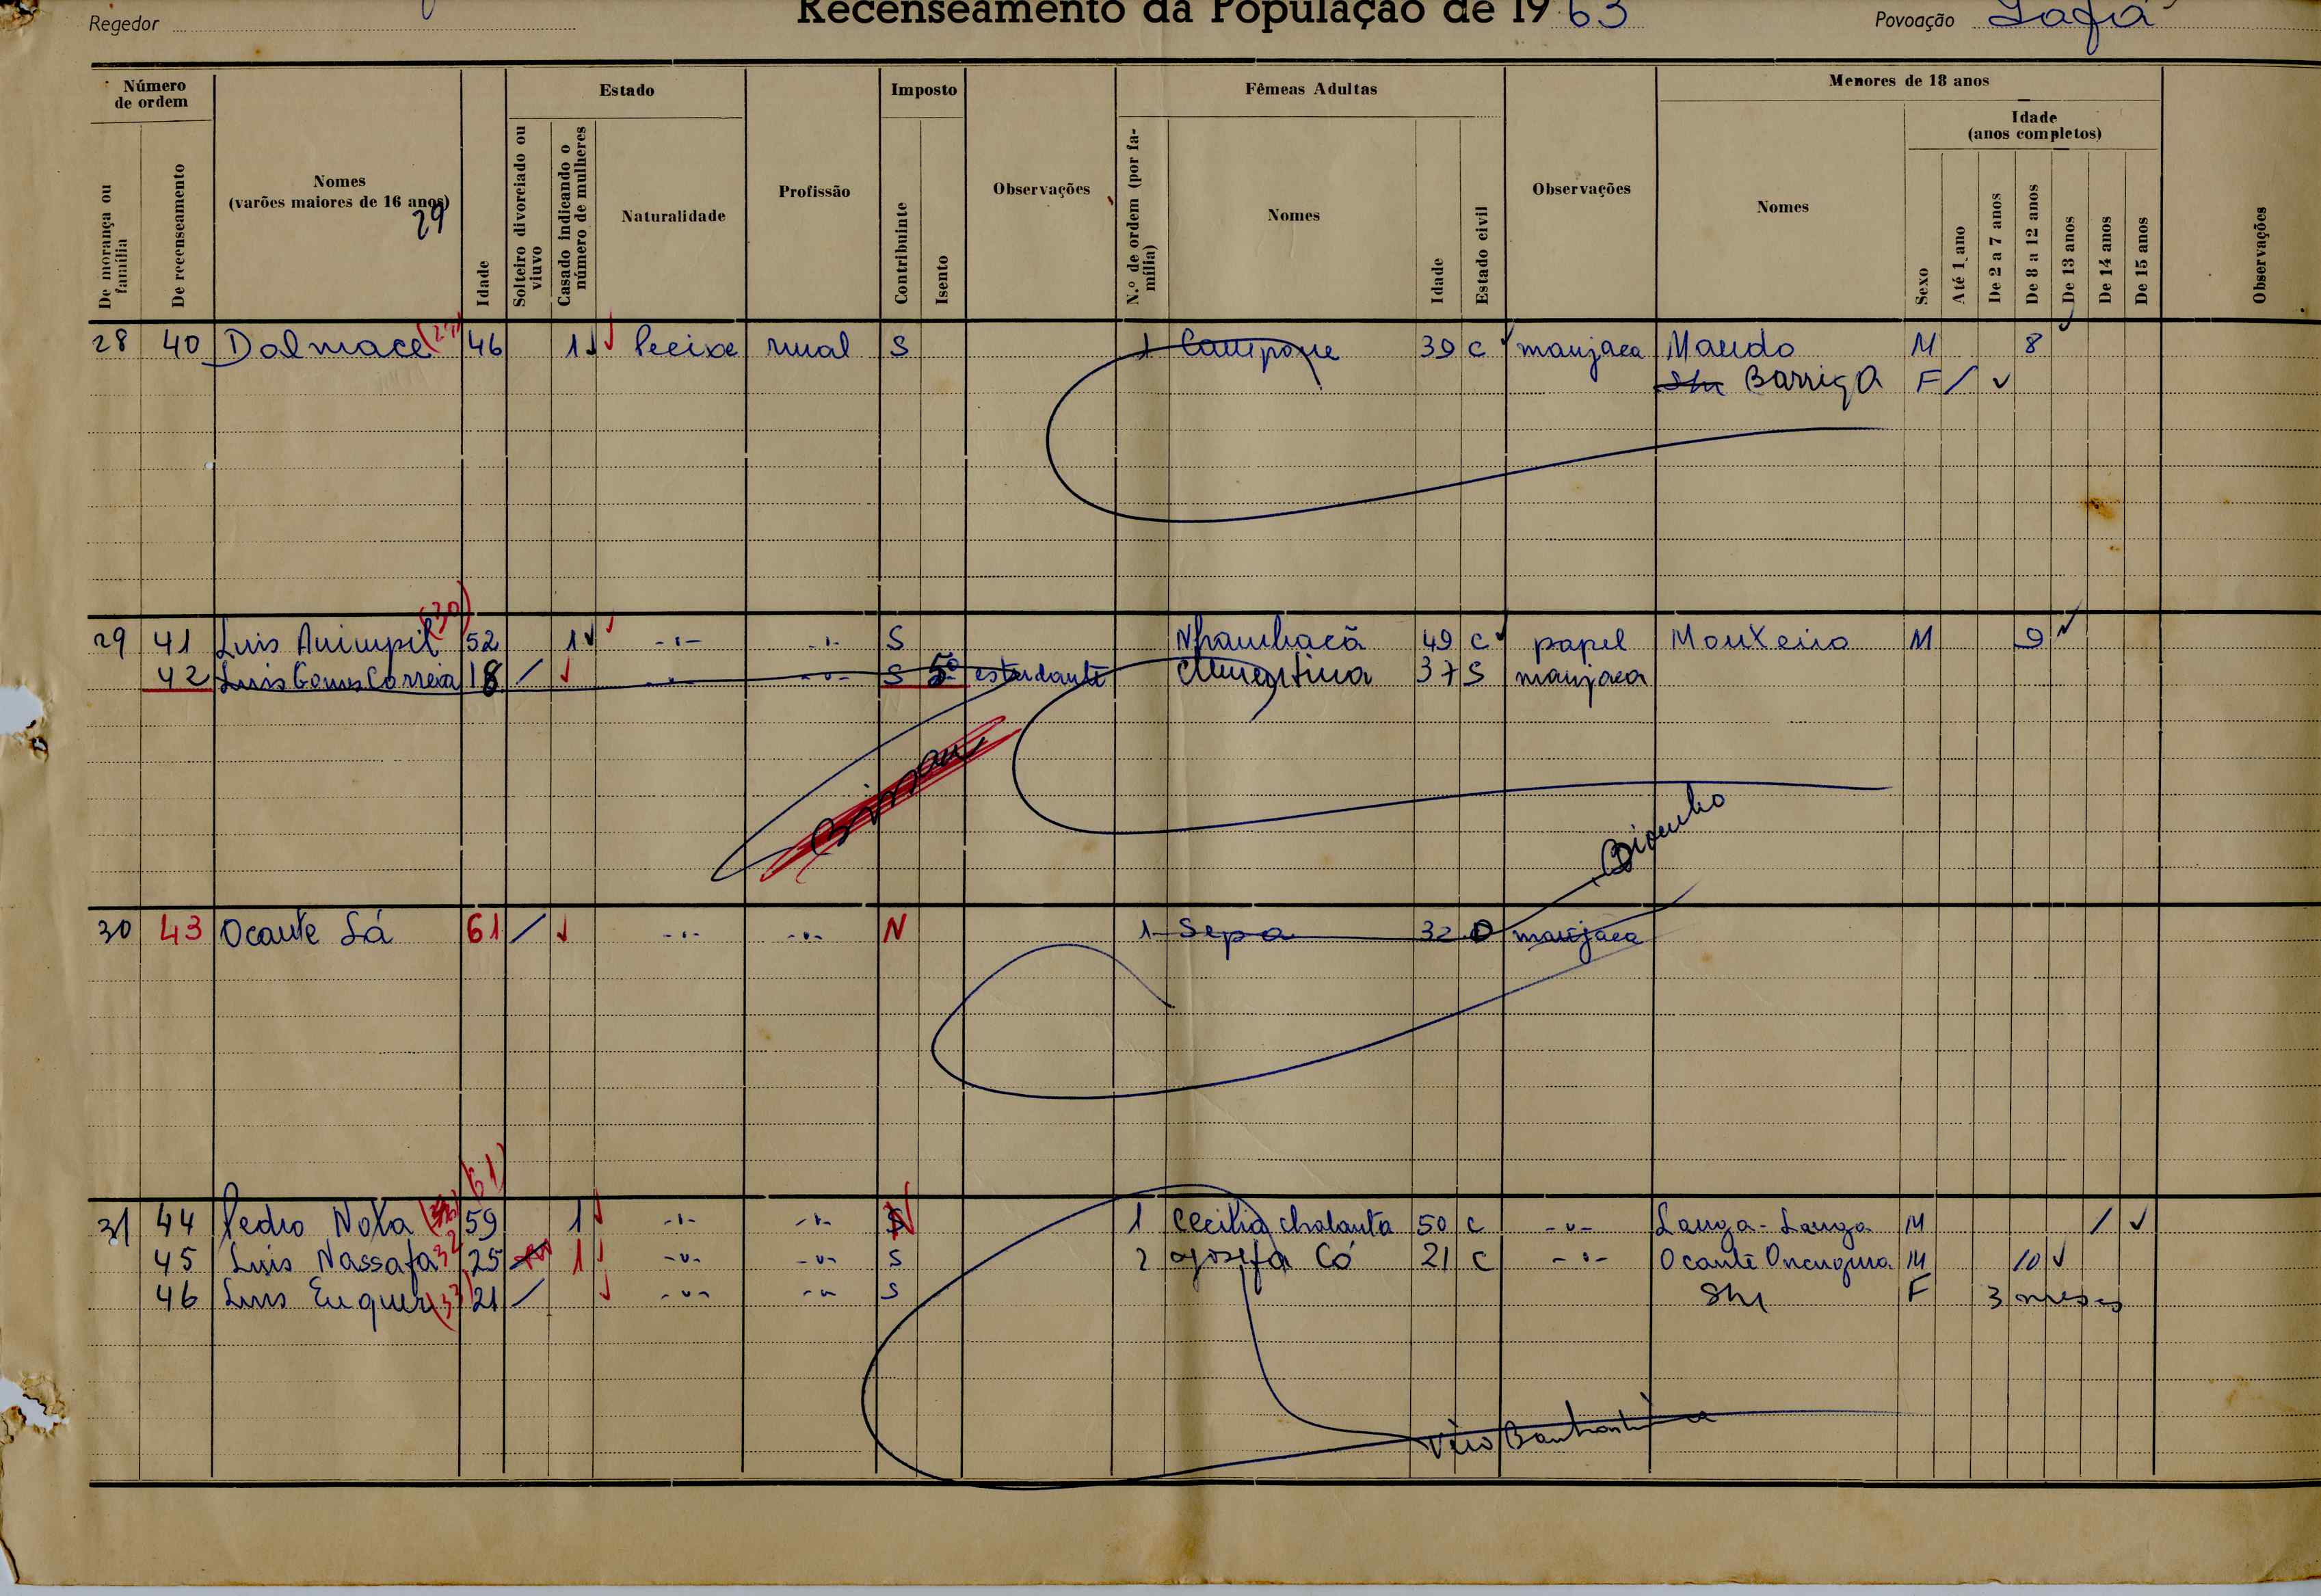 Regedor
Recenseamento da População de 1963
Povoação
Número de ordem
De morança ou família
De recenseamento
Nomes
(varões maiores de 16 anos)
29
Idade
Estado
Solteiro divorciado ou viuvo
Casado indicando o número de mulheres
Naturalidade
Profissão
Imposto
Contribuinte
Isento
Observações
Fêmeas Adultas
N.º de ordem (por família)
Nomes
Idade
Estado civil
Observações
Menores de 18 anos
Nomes
Sexo
Idade
(anos completos)
Até 1 ano
De 2 a 7 anos
De 8 a 12 anos
De 13 anos
De 14 anos
De 15 anos
Observações
28 40 Dalmace 46 1 Pecixe rual S 1 39 C manjaca Mando M 8
Barriga F
(30)
29 41 Luis 52 1 -"- -"- S 49 C papel M 9
42 Luis Gomes Correia 18 -"- -"- S 5º estudante 37 S manjaca
30 43 Ocante Sá 61 -"- -"- N 1 Sepa 32 manjaca
(61)
31 44 Pedro Nota 59 1 -"- -"- N 1 Cecilia chalanta 50 C -"- Langa-Langa M
45 Luis Nassafa 32 25 1 -"- -"- S 2 Josefa Có 21 C -"- M 10
46 Luis 21 -"- -"- S F 3 meses